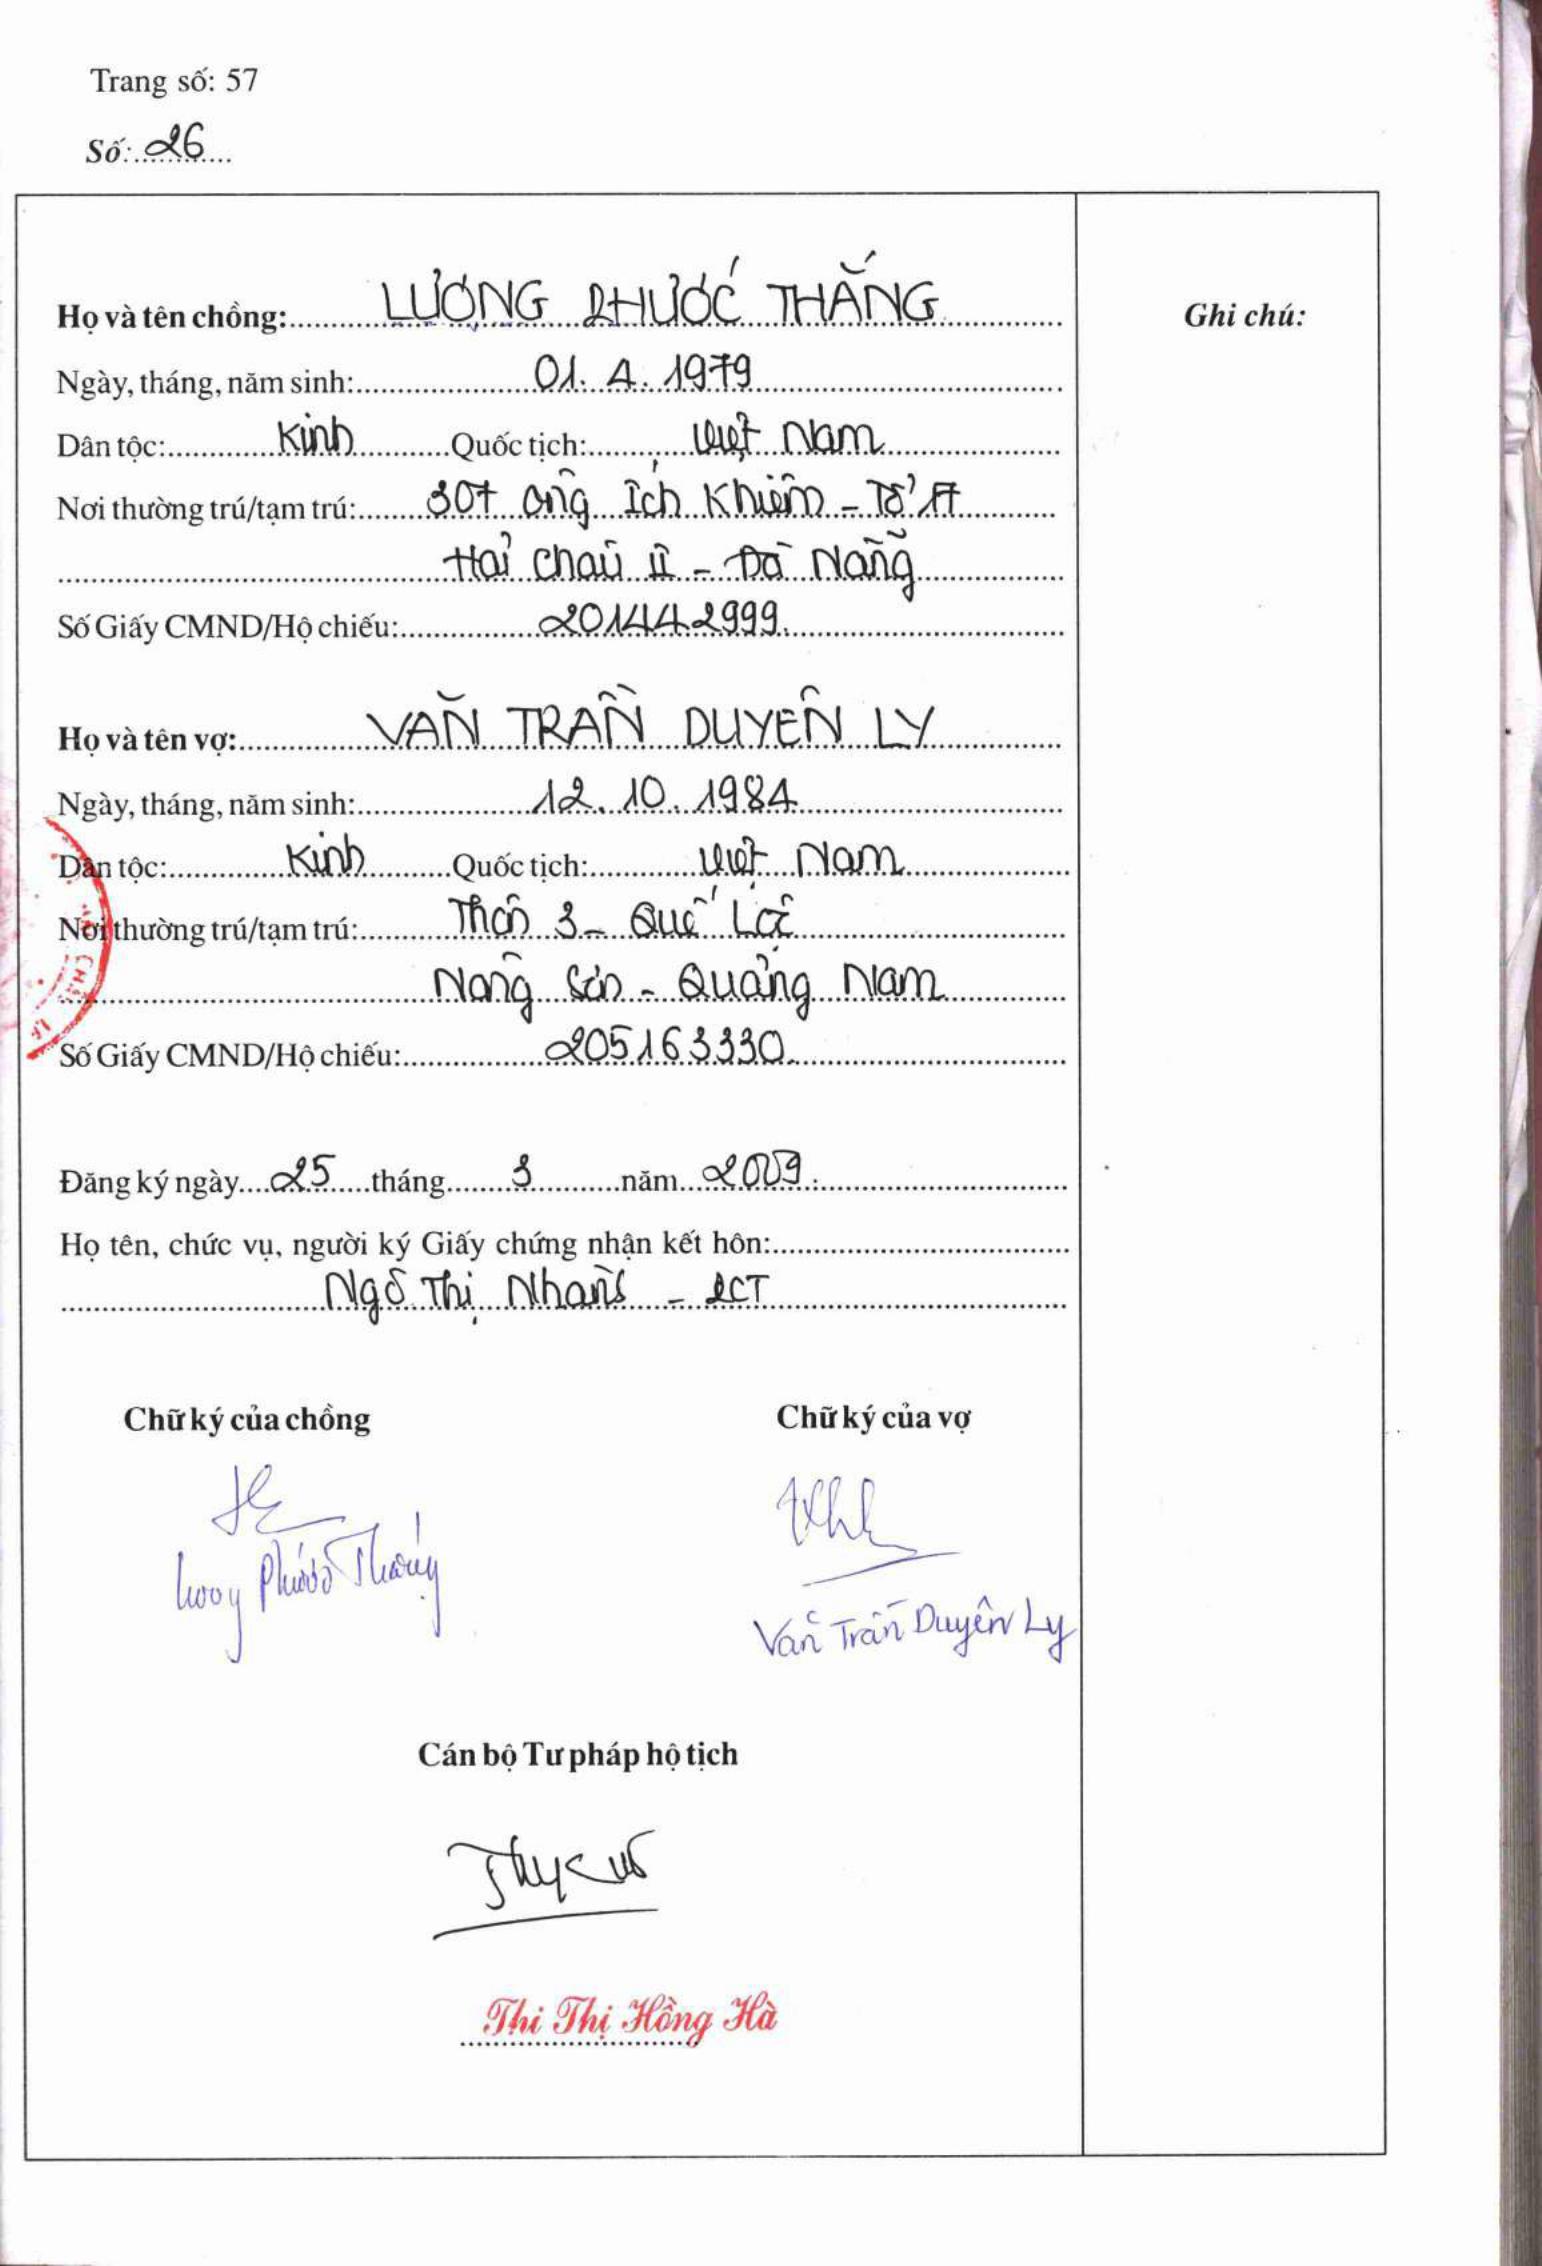 Trang số: 57
Số: 26
Họ và tên chồng: LƯƠNG PHƯỚC THẮNG
Ghi chú:
Ngày, tháng, năm sinh: 01. 4. 1979
Dân tộc: Kinh Quốc tịch: Việt Nam
Nơi thường trú/tạm trú: 307 Ông Ích Khiêm - Tổ
Hải Châu II - Đà Nẵng
Số Giấy CMND/Hộ chiếu: 201442999
Họ và tên vợ: VĂN TRẦN DUYÊN LY
Ngày, tháng, năm sinh: 12. 10. 1984
Dân tộc: Kinh Quốc tịch: Việt Nam
Nơi thường trú/tạm trú: Thôn 3 - Quế Lộc
Nông Sơn - Quảng Nam
Số Giấy CMND/Hộ chiếu: 205163330
Đăng ký ngày 25 tháng 3 năm 2009
Họ tên, chức vụ, người ký Giấy chứng nhận kết hôn:
Ngô Thị Nhanh - PCT
Chữ ký của chồng Chữ ký của vợ
Lương Phước Thắng
Văn Trần Duyên Ly
Cán bộ Tư pháp hộ tịch
Thi Thị Hồng Hà